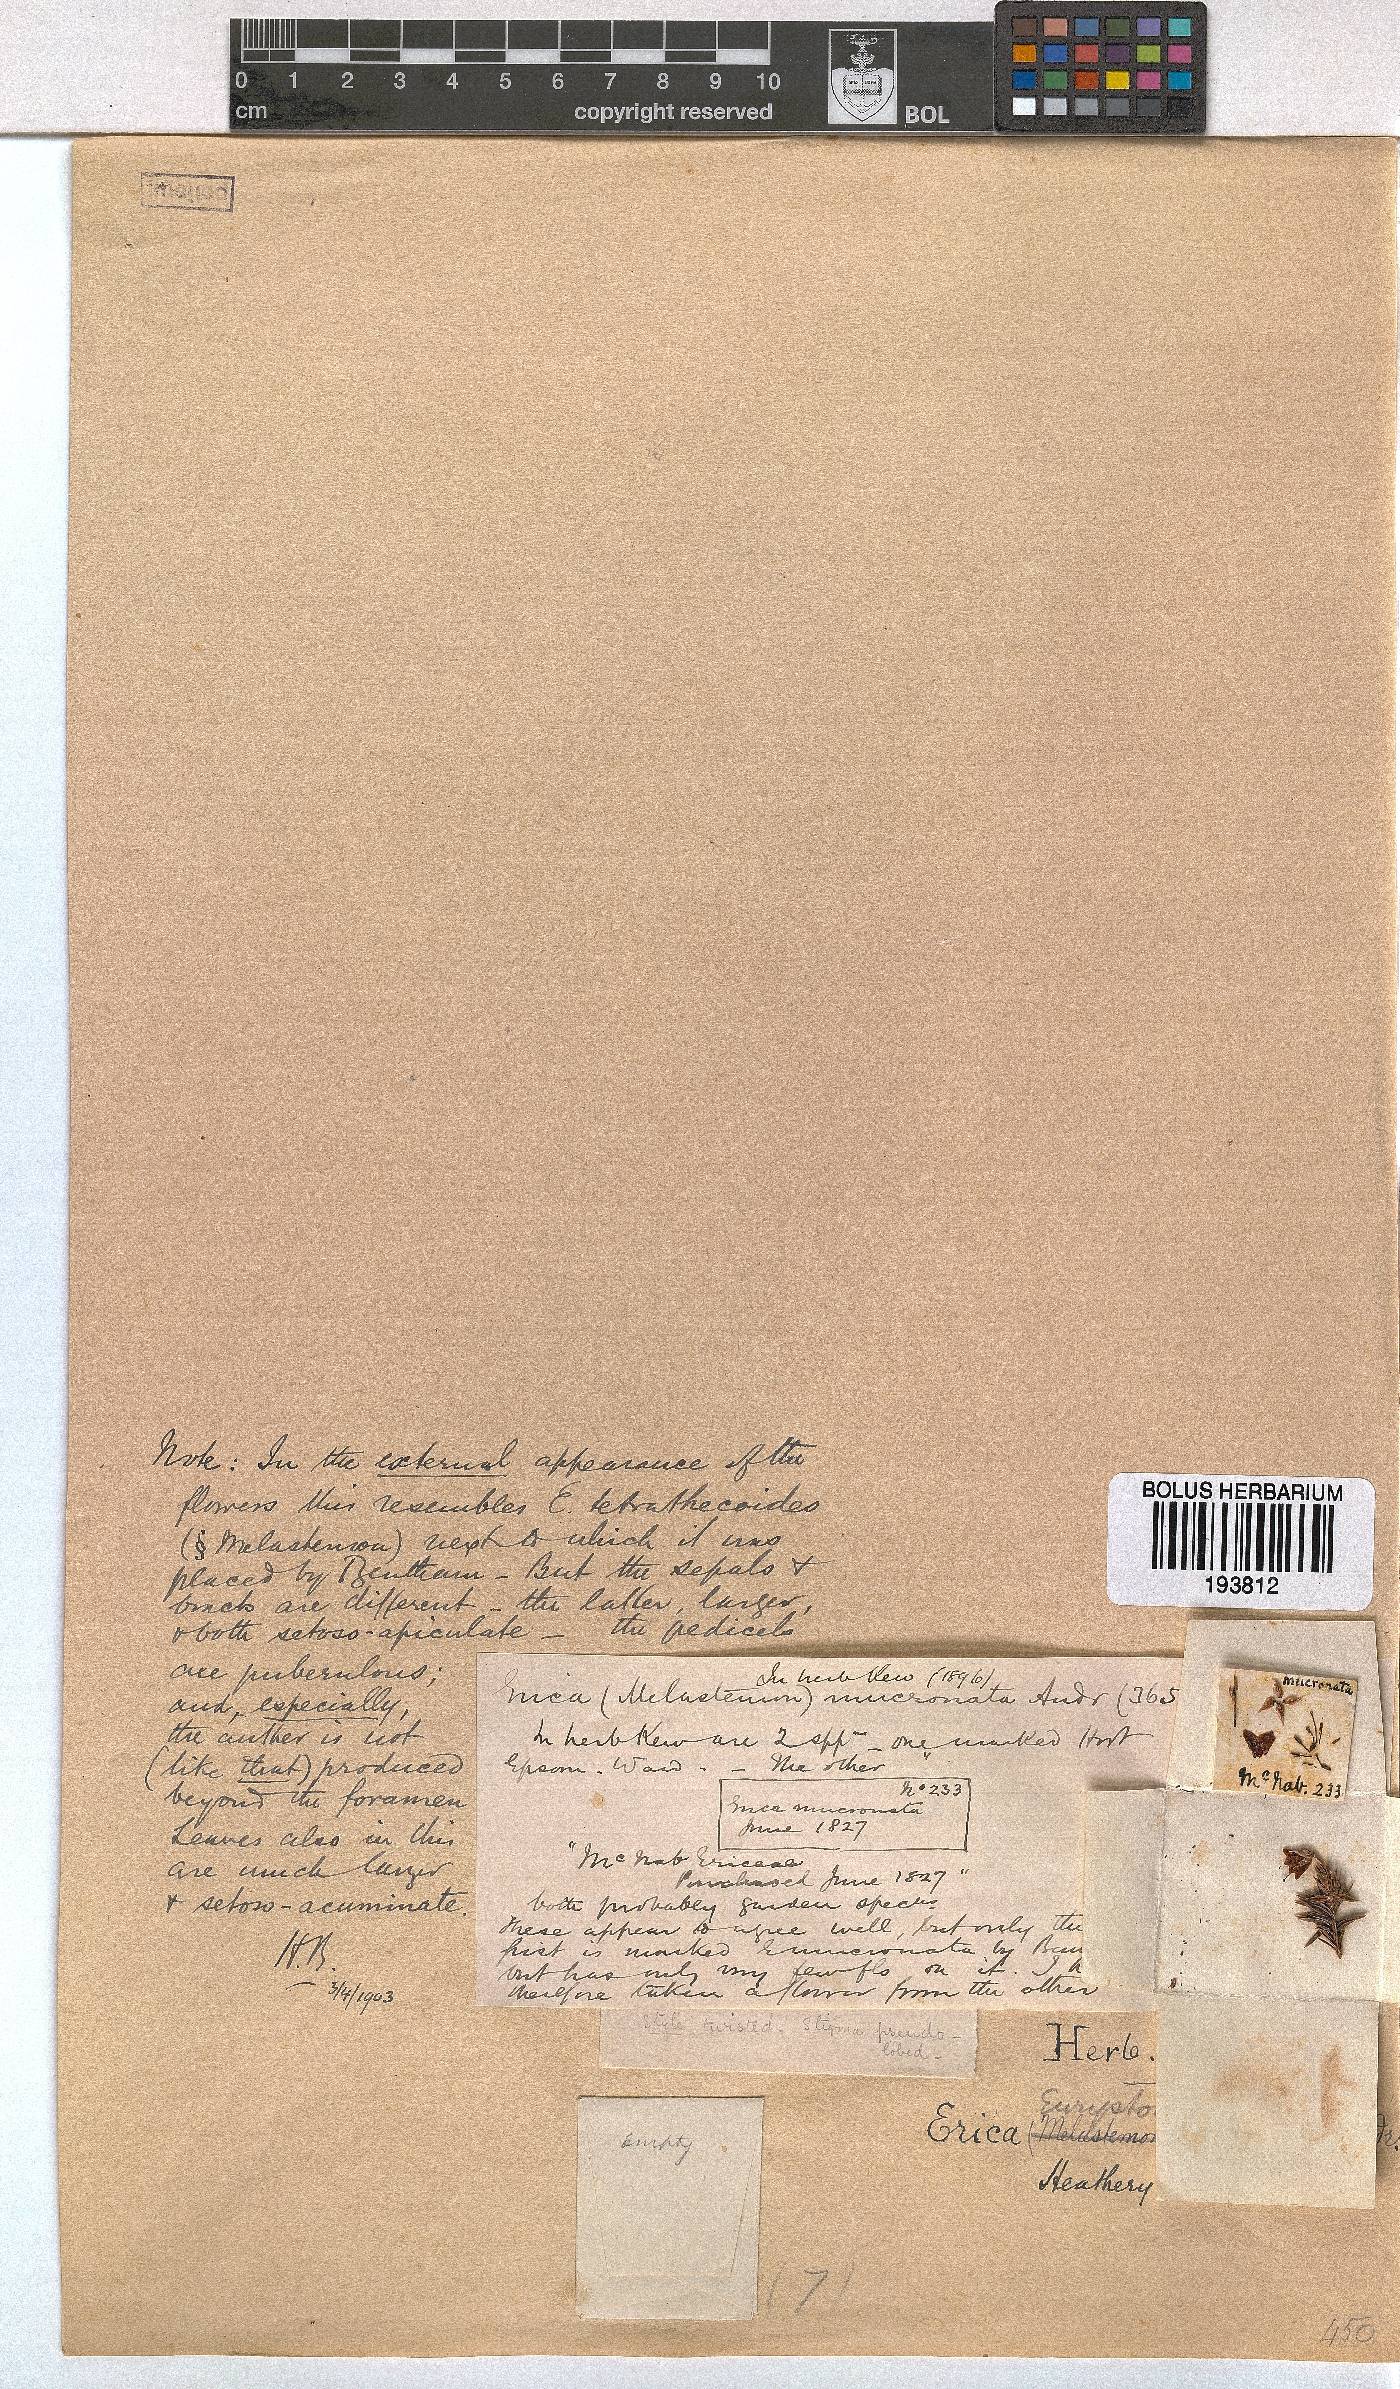 0 1 2 3 4 5 6 7 8 9 10
cm copyright reserved BOL
Note: In the external appearance of the
flowers this resembles E. tetrathecoides
(§ Melastemon) next to which it was
placed by Bentham - But the sepals &
bracts are different - the latter, larger,
& both setoso-apiculate - the pedicels
are puberulous;
and, especially,
the anther is not
(like that) produced
beyond the foramen
Leaves also in this
are much larger
& setoso-acuminate.
H.B.
3/4/1903
BOLUS HERBARIUM
193812
mucronata
McNab. 233
In herb Kew (1896)
Erica (Melastemon) mucronata Andr (365
In herb Kew are 2 spp - one marked Hort
Epsom. Ward. - The other
No 233
Erica mucronata
June 1827
"McNab Ericeae
Purchased June 1827"
both probably garden specns
These appear to agree well, but only the
first is marked E mucronata by Ben
but has only very few fls on it. I h
therefore taken a flower from the other
Style twisted. Stigma pseudo-
lobed-
empty
Herb.
Eurysto
Erica (Melastemon
Heathery
(7)
450